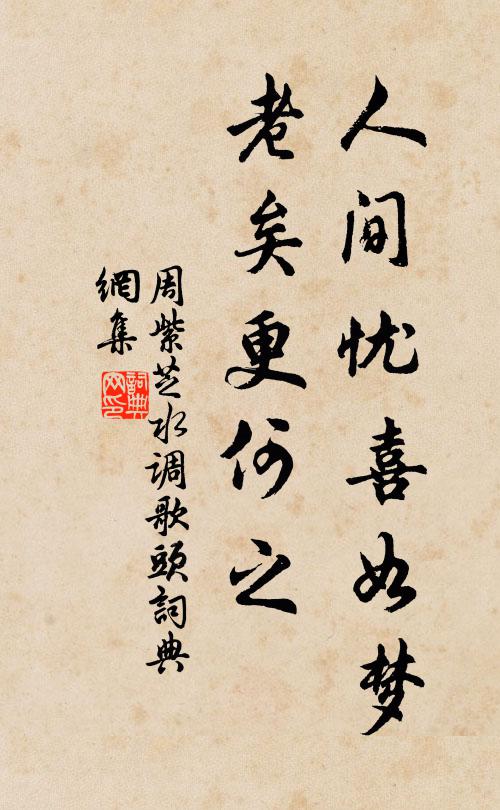 人间忧喜如梦
老矣更何之
周紫芝水调歌头詞典
網集
詞典
网印